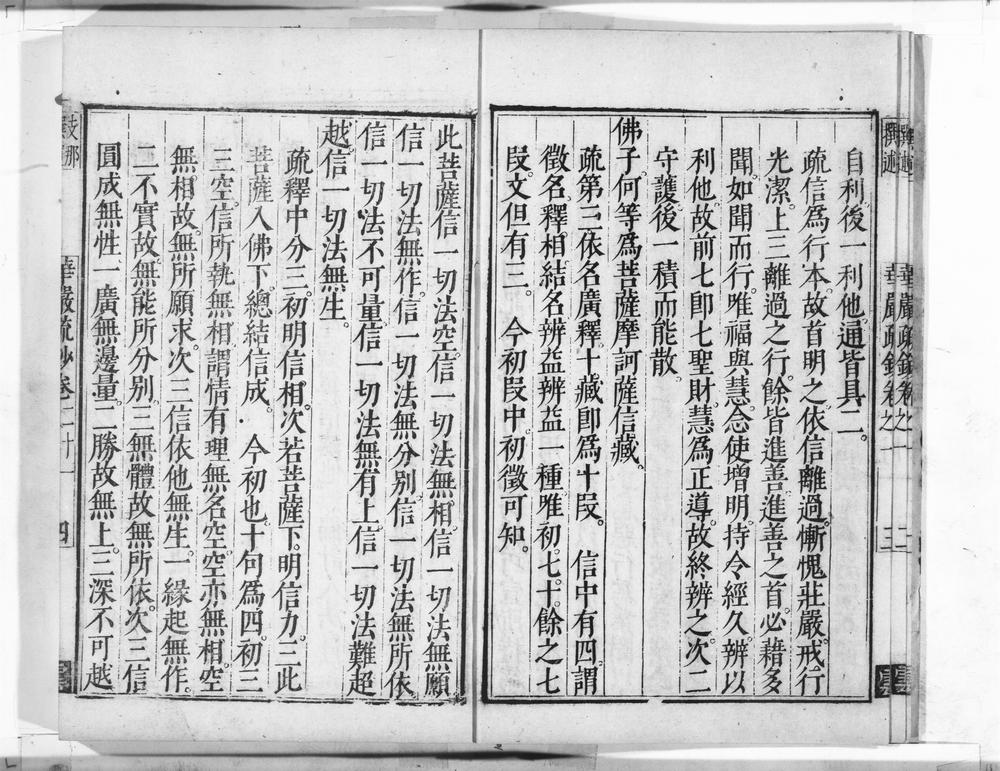 自利後一利他通皆具二。
疏信爲行本故首明之依信離過慚愧莊嚴戒行
光潔上三離過之行餘皆進善進善之首必藉多
聞如聞而行唯福與慧念使增明持令經久辨以
利他故前七卽七聖財慧爲正導故終辨之次二
守護後一積而能散。
佛子何等爲菩薩摩訶薩信藏。
疏第三依名廣釋十藏卽爲十段。 信中有四謂
徵名釋相結名辨益辨益一種唯初七十餘之七
段文但有三。 今初段中初徵可知。
此菩薩信一切法空信一切法無相信一切法無願
信一切法無作信一切法無分別信一切法無所依
信一切法不可量信一切法無有上信一切法難超
越信一切法無生。
疏釋中分三初明信相次若菩薩下明信力三此
菩薩入佛下總結信成。 今初也十句爲四初三
三空信所執無相謂情有理無名空空亦無相空
無相故無所願求次三信依他無生一緣起無作
二不實故無能所分別三無體故無所依次三信
圓成無性一廣無邊量二勝故無上三深不可越
華嚴疏鈔卷二十一
四